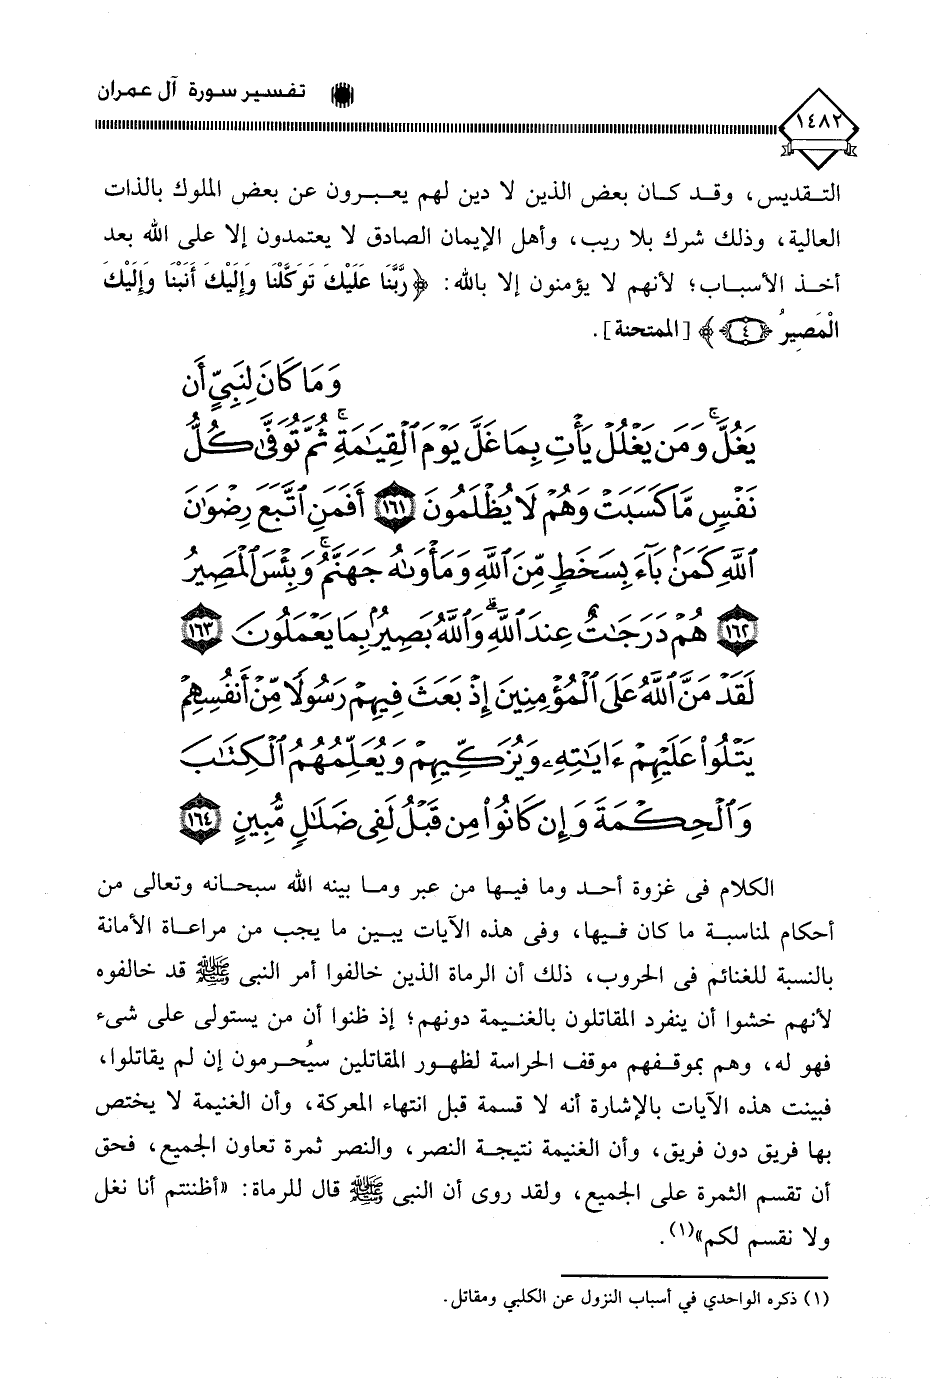 تفسير سورة آل عمران
١٤٨٢
التقديس، وقد كان بعض الذين لا دين لهم يعبرون عن بعض الملوك بالذات
العالية، وذلك شرك بلا ريب، وأهل الإيمان الصادق لا يعتمدون إلا على الله بعد
أخذ الأسباب؛ لأنهم لا يؤمنون إلا بالله: ﴿رَّبَّنَا عَلَيْكَ تَوَكَّلْنَا وَإِلَيْكَ أَنَبْنَا وَإِلَيْكَ
الْمَصِيرُ ﴿٤﴾﴾ [الممتحنة].
وَمَا كَانَ لِنَبِيٍّ أَن
يَغُلَّ ۚ وَمَن يَغْلُلْ يَأْتِ بِمَا غَلَّ يَوْمَ ٱلْقِيَـٰمَةِ ۚ ثُمَّ تُوَفَّىٰ كُلُّ
نَفْسٍ مَّا كَسَبَتْ وَهُمْ لَا يُظْلَمُونَ ﴿١٦١﴾ أَفَمَنِ ٱتَّبَعَ رِضْوَٰنَ
ٱللَّهِ كَمَنۢ بَآءَ بِسَخَطٍ مِّنَ ٱللَّهِ وَمَأْوَىٰهُ جَهَنَّمُ ۚ وَبِئْسَ ٱلْمَصِيرُ
﴿١٦٢﴾ هُمْ دَرَجَـٰتٌ عِندَ ٱللَّهِ ۗ وَٱللَّهُ بَصِيرٌۢ بِمَا يَعْمَلُونَ ﴿١٦٣﴾
لَقَدْ مَنَّ ٱللَّهُ عَلَى ٱلْمُؤْمِنِينَ إِذْ بَعَثَ فِيهِمْ رَسُولًا مِّنْ أَنفُسِهِمْ
يَتْلُوا۟ عَلَيْهِمْ ءَايَـٰتِهِۦ وَيُزَكِّيهِمْ وَيُعَلِّمُهُمُ ٱلْكِتَـٰبَ
وَٱلْحِكْمَةَ وَإِن كَانُوا۟ مِن قَبْلُ لَفِى ضَلَـٰلٍ مُّبِينٍ ﴿١٦٤﴾
الكلام فى غزوة أحد وما فيها من عبر وما بينه الله سبحانه وتعالى من
أحكام لمناسبة ما كان فيها، وفى هذه الآيات يبين ما يجب من مراعاة الأمانة
بالنسبة للغنائم فى الحروب، ذلك أن الرماة الذين خالفوا أمر النبى ﷺ قد خالفوه
لأنهم خشوا أن ينفرد المقاتلون بالغنيمة دونهم؛ إذ ظنوا أن من يستولى على شىء
فهو له، وهم بموقفهم موقف الحراسة لظهور المقاتلين سيُحرمون إن لم يقاتلوا،
فبينت هذه الآيات بالإشارة أنه لا قسمة قبل انتهاء المعركة، وأن الغنيمة لا يختص
بها فريق دون فريق، وأن الغنيمة نتيجة النصر، والنصر ثمرة تعاون الجميع، فحق
أن تقسم الثمرة على الجميع، ولقد روى أن النبى ﷺ قال للرماة: «أظننتم أنا نغل
ولا نقسم لكم»(١).
(١) ذكره الواحدي في أسباب النزول عن الكلبي ومقاتل.